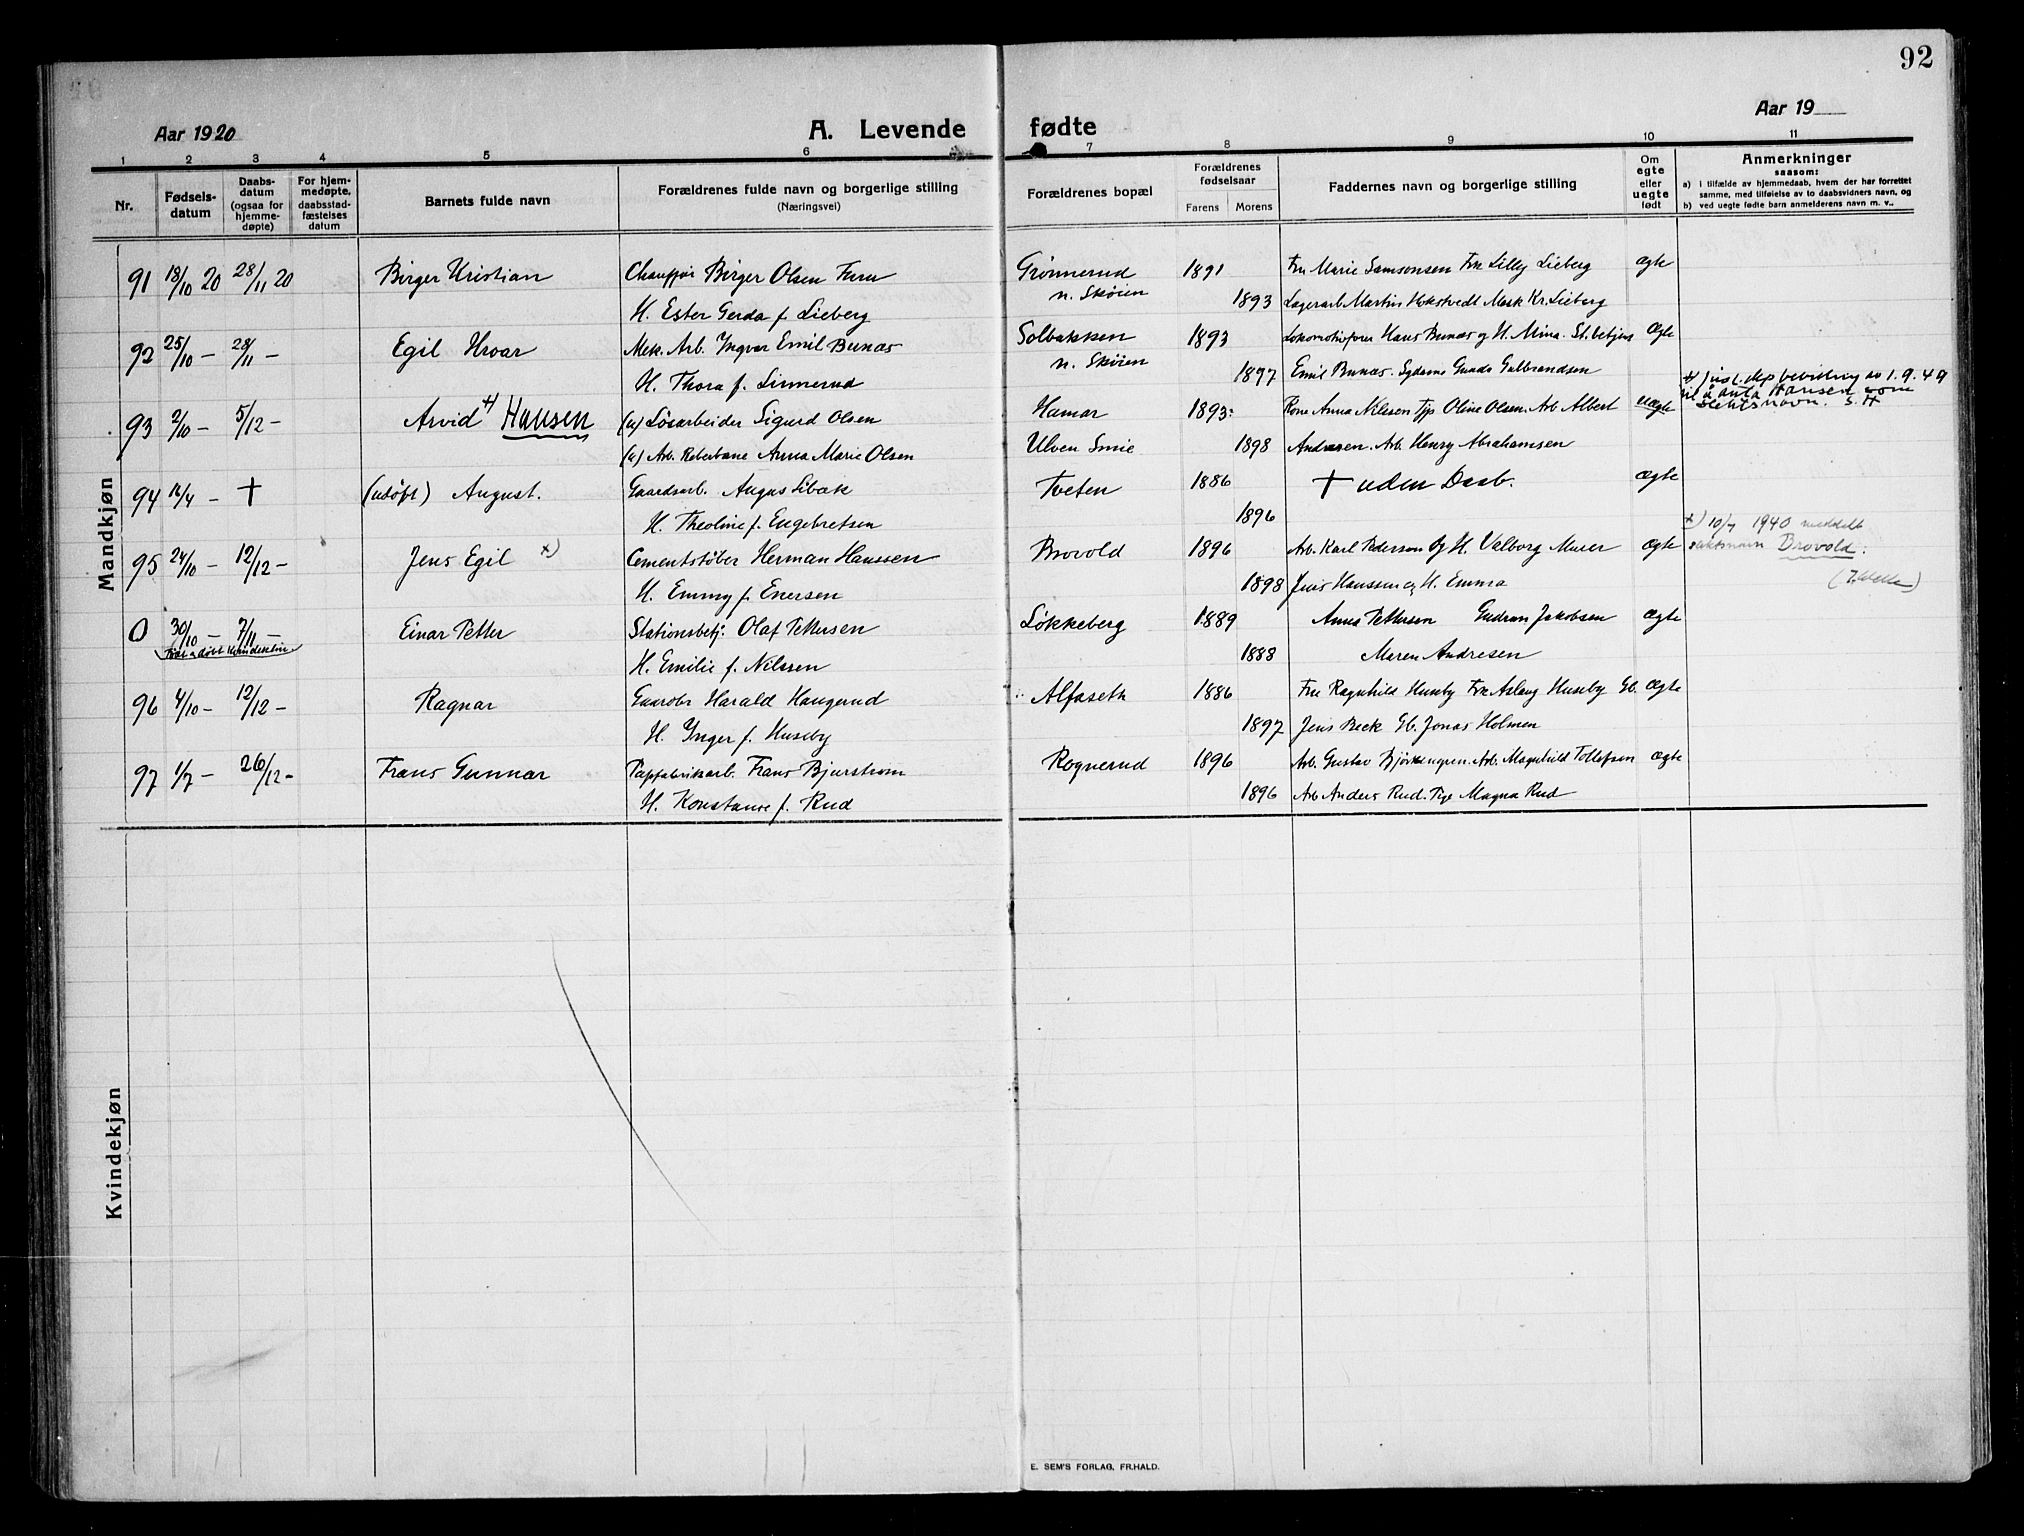 92
Aar 1920
A. Levende fødte
Aar 19
1 2 3 4 5 6 7 8 9 10 11
Nr.
Fødsels-
datum
Daabs-
datum
(ogsaa for
hjemme-
døpte)
For hjem-
medøpte,
daabsstad-
fæstelses
datum
Barnets fulde navn
Forældrenes fulde navn og borgerlige stilling
(Næringsvei)
Forældrenes bopæl
Forældrenes
fødselsaar
Farens Morens
Faddernes navn og borgerlige stilling
Om
egte
eller
uegte
født
Anmerkninger
saasom:
a) i tilfælde av hjemmedaab, hvem der har forrettet
samme, med tilføielse av to daabsvidners navn, og
b) ved uegte fødte barn anmelderens navn m. v.,
Mandkjøn
91 18/10 20 28/11 20 Birger Kristian Chauffør Birger Olsen Furu Grønnerud 1891 Frk Marie Samsonsen Frk Lilly Lieberg Ægte
H. Ester Gerda f. Lieberg n. Skøien 1893 Lagerarb. Martin Hekstvedt Mask Kr. Lieberg
92 25/10 – 28/11 – Egil Hroar Mek. Arb. Yngvar Emil Bunæs Solbakken 1893 Lokomotivfører Hans Bunæs og H. Mina. St.betjent Ægte
H. Thora f. Linnerud n. Skøien 1897 Emil Bunæs. Sydame Gunda Gulbrandsen
93 2/10 – 5/12 – Arvid +) Hansen (u) Løsarbeider Sigurd Olsen Hamar 1893: Kone Anna Nilsen Tjp Oline Olsen. Arb Albert uægte
+) just. dep bevilling av 1.9.49
til å anta Hansen som
slektsnavn. S. H
(u) Arb. Reberbane Anna Marie Olsen Ulven Smie 1898 Andersen. Arb. Henry Abrahamsen
94 16/4 – + (udøbt) August. Gaardsarb. August Libæk Tveten 1886 + uden Daab. Ægte
H. Theoline f. Engebretsen 1896
95 24/10 – 12/12 – Jens Egil x) Cementstøber Herman Hanssen Brovold 1896 Arb. Karl Pederson Og H. Valborg Murer Ægte
x) 10/7 1940 meddelt
slektsnavn Brovold.
H. Emmy f. Enersen 1898 Jens Hanssen og H. Emma
0 30/10 – 7/11 – Einar Petter Stationsbetj: Olaf Pettersen Løkkeberg 1889 Anna Pettersen Gudrun Jakobsen Ægte
Født & døbt Kvindeklin
H. Emilie f. Nilssen 1888 Maren Andresen
96 4/10 – 12/12 – Ragnar Gaardbr Harald Haugerud Alfaseth 1886 Frk Ragnhild Huseby Frk Aslaug Huseby Gb. Ægte
H. Ynger f. Huseby 1897 Jens Beck Gb. Jonas Holmen
97 1/7 – 26/12 – Frans Gunnar Papfabrikarb. Frans Bjurstrøm Rognerud 1896 Arb. Gustav Bjørkengren. Arb. Magnhild Tollefsen Ægte
H. Konstanse f. Rud 1896 Arb Anders Rud. Pige Magna Rud
Kvindekjøn
E. SEM'S FORLAG, FR.HALD.